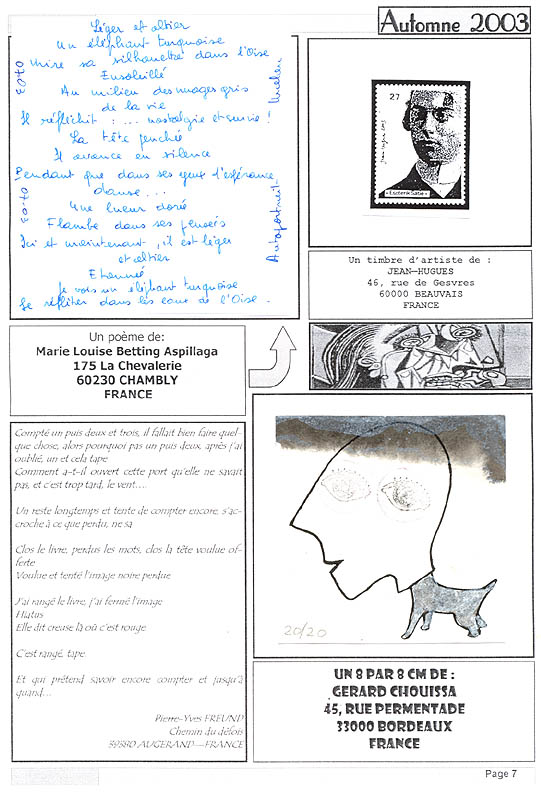 Automne 2003
Léger et altier
Un éléphant turquoise
Mire sa silhouette dans l'Oise
Ensoleillé
Au milieu des nuages gris
de la vie
Il réfléchit : ... nostalgie et survie !
La tête penchée
Il avance en silence
Pendant que dans ses yeux l'espérance
danse...
Une lueur doré
Flambe dans ses pensées
Ici et maintenant, il est léger
et altier
Etonnée
Je vois un éléphant turquoise
Se refléter dans les eaux de l'Oise.
Autoportrait
27
«Esoterik Satie»
Un timbre d'artiste de :
JEAN-HUGUES
46, rue de Gesvres
60000 BEAUVAIS
FRANCE
Un poème de:
Marie Louise Betting Aspillaga
175 La Chevalerie
60230 CHAMBLY
FRANCE
Compté un puis deux et trois, il fallait bien faire quel-
que chose, alors pourquoi pas un puis deux, après j'ai
oublié, un et cela tape
Comment a-t-il ouvert cette port qu'elle ne savait
pas, et c'est trop tard, le vent....
Un reste longtemps et tente de compter encore, s'ac-
croche à ce que perdu, ne sa
Clos le livre, perdus les mots, clos la tête voulue of-
ferte
Voulue et tenté l'image noire perdue
J'ai rangé le livre, j'ai fermé l'image
Hiatus
Elle dit creuse là où c'est rouge
C'est rangé, tape
Et qui prétend savoir encore compter et jusqu'à
quand...
Pierre-Yves FREUND
Chemin du défois
39380 AUGERAND—FRANCE
20/20
UN 8 PAR 8 CM DE :
GERARD CHOUISSA
45, RUE PERMENTADE
33000 BORDEAUX
FRANCE
Page 7